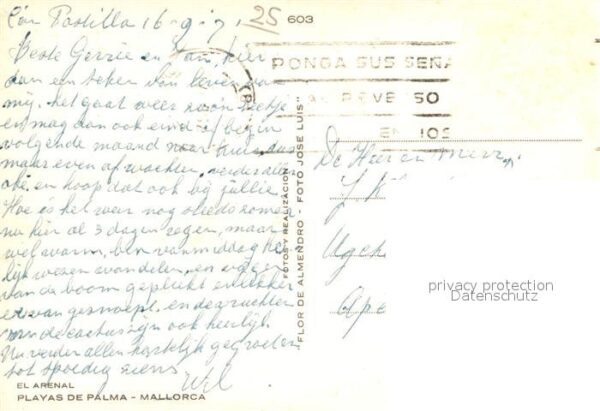 Can Pastilla 16-9-71
25
603
Beste Gerrie en Jan, hier
dan een teken van leven van
mij. het gaat weer zoon beetje
en mag dan ook eind of begin
volgende maand naar huis dus
maar even afwachten, verder alles
oke, en hoop dat ook bij jullie.
Hoe is het weer nog steeds zomers
nu hier al 3 dagen regen, maar
wel warm, ben vanmiddag he
lijk wezen wandelen, en vijgen
van de boom geplukt en lekker
ervan gesnoept, en de vruchten
van de cactus zijn ook heerlijk
Nu verder allen hartelijk gegroeten
tot spoedig ziens
Wil
PONGA SUS SEÑA
AL REVERSO
EN LOS
De Heer en Mevr.
J K
Ugch
Ape
FOTOS Y REALIZACION
FLOR DE ALMENDRO - FOTO JOSE LUIS"
privacy protection
Datenschutz
EL ARENAL
PLAYAS DE PALMA - MALLORCA